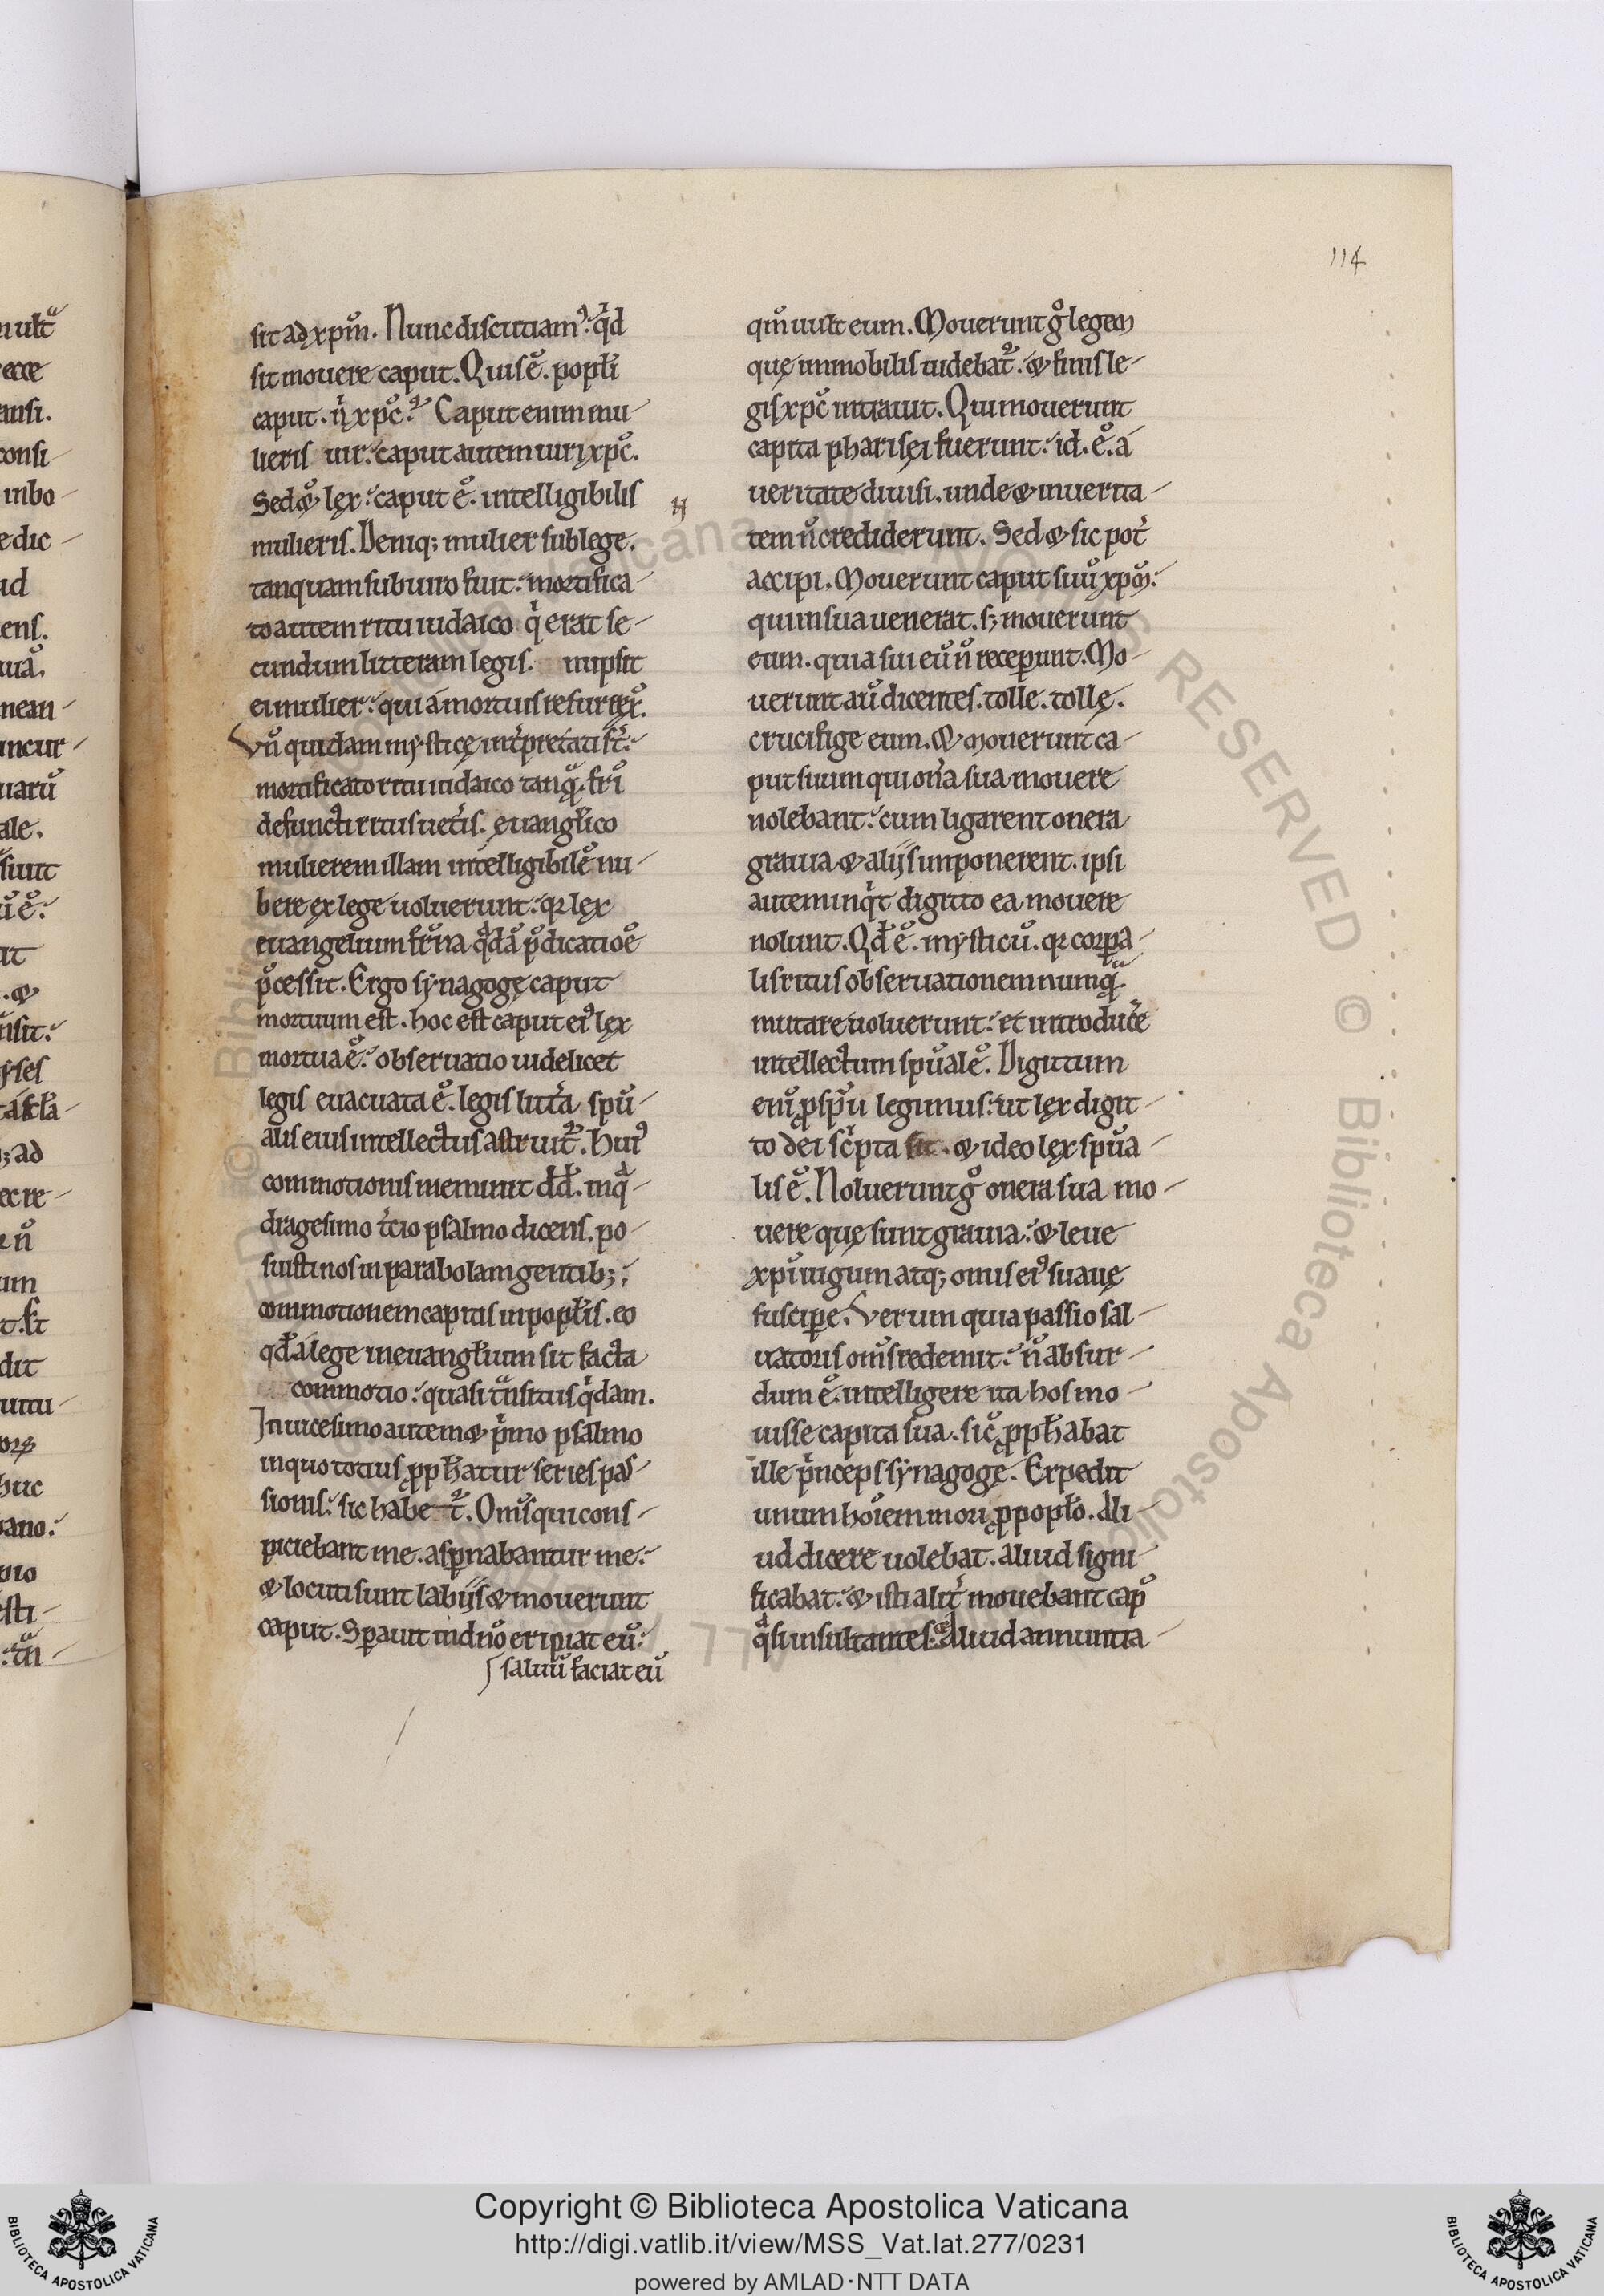 114
sit ad xpm̄. Nunc discutiam᷒: qͥd
sit mouere caput. Quis ē. popłi
caput. ñ xp̄c? Caput enim mu-
lieris uir: caput autem uiri xp̄c.
Sed & lęx: caput ē. intelligibilis
mulieris. Deniq; mulier sub lege.
tanquam sub uiro fuit: mortifica-
to autem ritu iudaico qͥ erat se-
cundum litteram legis. nupsit
ei mulier: qui á mortuis resurręx̄.
Vn̄ quidam mysticę int̄pretati st̄:
mortificato ritu iudaico tanqͣ̄. fr̄i
defuncti ritus uet̄is. ęuangł̄ico
mulierem illam intelligibilē nu-
bere ęx lege uoluerunt: qꝛ lęx
euangelium fr̄na qͣdā p̄dicatiōe
p̄cessit. Ergo synagogę caput
mortuum est. hoc est caput ei᷒ lęx
mortua ē: obseruatio uidelicet
legis euacuata ē. legis litt̄a spū-
alis eius intellectus astruit᷒. hui᷒
commotionis meminit dd̄. inqͣ-
dragesimo t̄cio psalmo dicens. po-
suisti nos in parabolam gentib;;
commotionem capitis in popł̄is. eo
qd̄ á lege in euangł̄ium sit facta
commotio: quasi tͣnsitus qͥdam.
In uicesimo autem & pͥmo psalmo
in quo totius ꝓph̄atur series pas-
sionis: sic habet᷒. Om̄s qui cons-
piciebant me. asp̄nabantur me:
& locuti sunt labijs & mouerunt
caput. Sp̄auit in dn̄o eripiat eū:
saluū faciat eū
H
qm̄ uult eum. Mouerunt gͦ legem
quę immobilis uidebat᷒: & finis le-
gis xp̄c intrauit. Qui mouerunt
capita pharisęi fuerunt: id. ē. á
ueritate diuisi. unde & in uerita-
tem n̄ crediderunt. Sed & sic pot̄
accipi. Mouerunt caput suū xpm̄:
qui in sua uenerat. s; mouerunt
eum. quia sui eū n̄ recep̄unt. Mo-
uerunt aū dicentes. tolle. tollę.
crucifige eum. & mouerunt ca-
put suum qui on̄a sua mouere
nolebant: cum ligarent onera
grauia & alijs imponerent. ipsi
autem inqͥt digito ea mouere
nolunt. Qd̄ ē. mysticū. qꝛ corpa-
lis ritus obseruationem numqͣ̄.
mutare uoluerunt: et introduc̄e
intellectum spūalē. Digitum
enī ꝓ sp̄u legimus: ut lęx digi-
to dei sc̄pta sit. & ideo lęx spūa-
lis ē. Noluerunt gͦ onera sua mo-
uere quę sunt grauia: & leue
xpi iugum atq; onus ei᷒ suauę
suscipe. Verum quia passio sal-
uatoris om̄s redemit: n̄ absur-
dum ē. intelligere ita hos mo-
uisse capita sua. sic̄ ꝓph̄abat
ille pͥnceps synagogę. Expedit
unum hoīem mori ꝓ popło. Ali-
ud dicere uolebat. aliud signi-
ficabat: & isti alit̄ mouebant cap̄
qͣsi insultantes: & aliud annuntia-
Copyright © Biblioteca Apostolica Vaticana
http://digi.vatlib.it/view/MSS_Vat.lat.277/0231
powered by AMLAD·NTT DATA
BIBLIOTECA APOSTOLICA VATICANA
BIBLIOTECA APOSTOLICA VATICANA